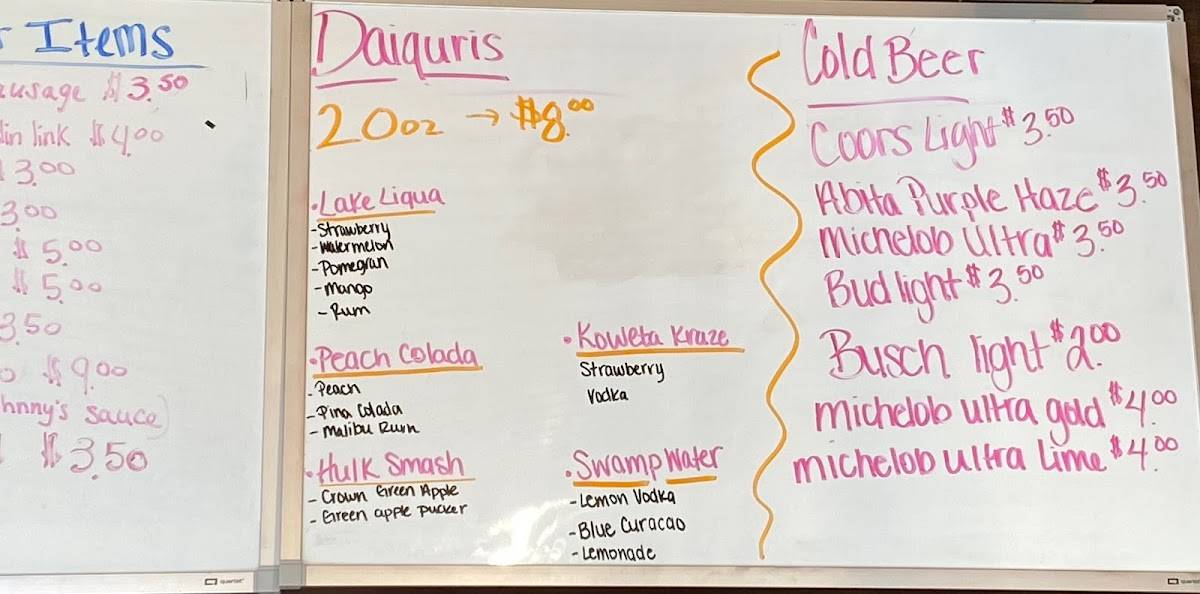 Items
$3.50
link $4.00
3.00
3.00
$5.00
$5.00
3.50
$9.00
sauce)
$3.50
Daiquris
20oz → $8.00
• Lake Liqua
- Strawberry
- Watermelon
- Pomegran
- Mango
- Rum
• Peach Colada
- Peach
- Pina Colada
- Malibu Rum
• Hulk Smash
- Crown Green Apple
- Green apple pucker
• Koweta Kraze
Strawberry
Vodka
• Swamp Water
- Lemon Vodka
- Blue Curacao
- Lemonade
Cold Beer
Coors Light $3.50
Abita Purple Haze $3.50
Michelob Ultra $3.50
Bud light $3.50
Busch light $2.00
michelob ultra gold $4.00
michelob ultra Lime $4.00
quartet
quartet